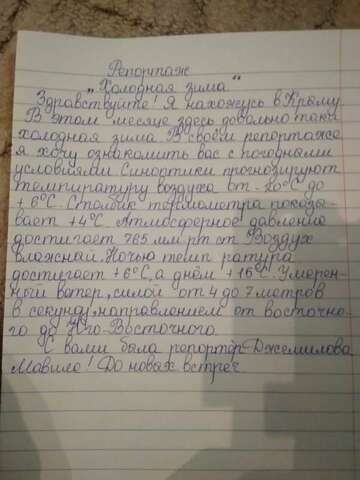 Репортаж
„Холодная зима"
Здравствуйте! Я нахожусь в Крыму.
В этом месяце здесь довольно таки
холодная зима. В своём репортаже
я хочу ознакомить вас с погодными
условиями. Синоптики прогнозируют
темпиратуру воздуха от -20°С до
+6°С. Столбик термометра показы-
вает +4°С. Атмосферное давление
достигает 765 мм рт ст. Воздух
влажный. Ночью темп ратура
достигает +6°С, а днём +16°С. Умерен-
ный ветер, силой от 4 до 7 метров
в секунду, направлением от восточно-
го до Юго-Восточного.
С вами была репортёр-Джемилова
Мавиле! До новых встреч